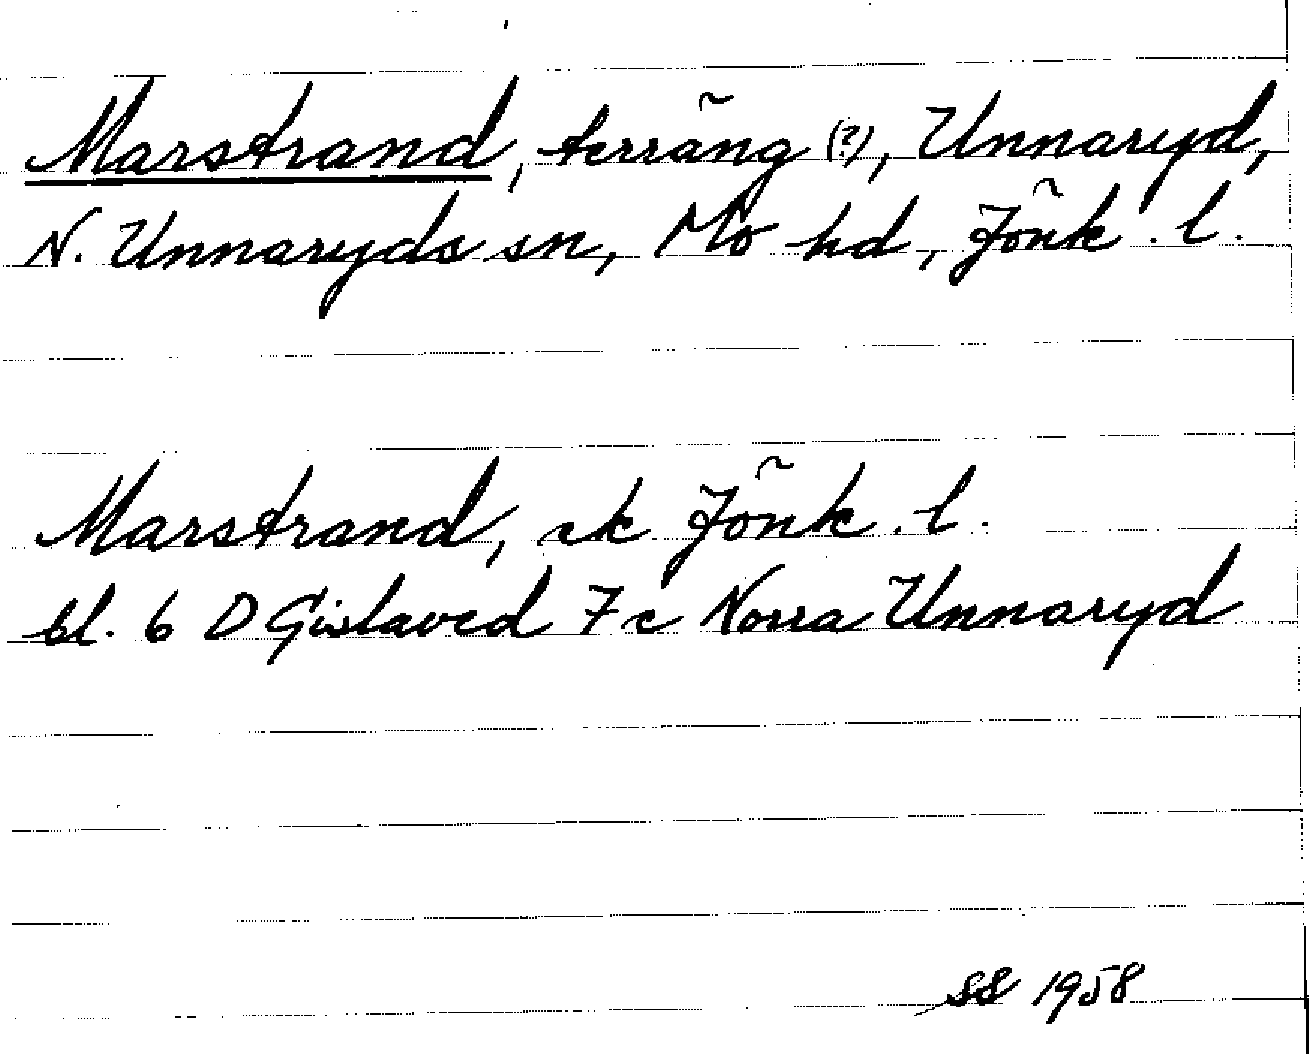 Marstrand, terräng (?), Unnaryd,
N. Unnaryds sn, Mo hd, Jönk. l.
Marstrand, ek Jönk. l.
bl. 6 D Gislaved 7 c Norra Unnaryd
SS 1958